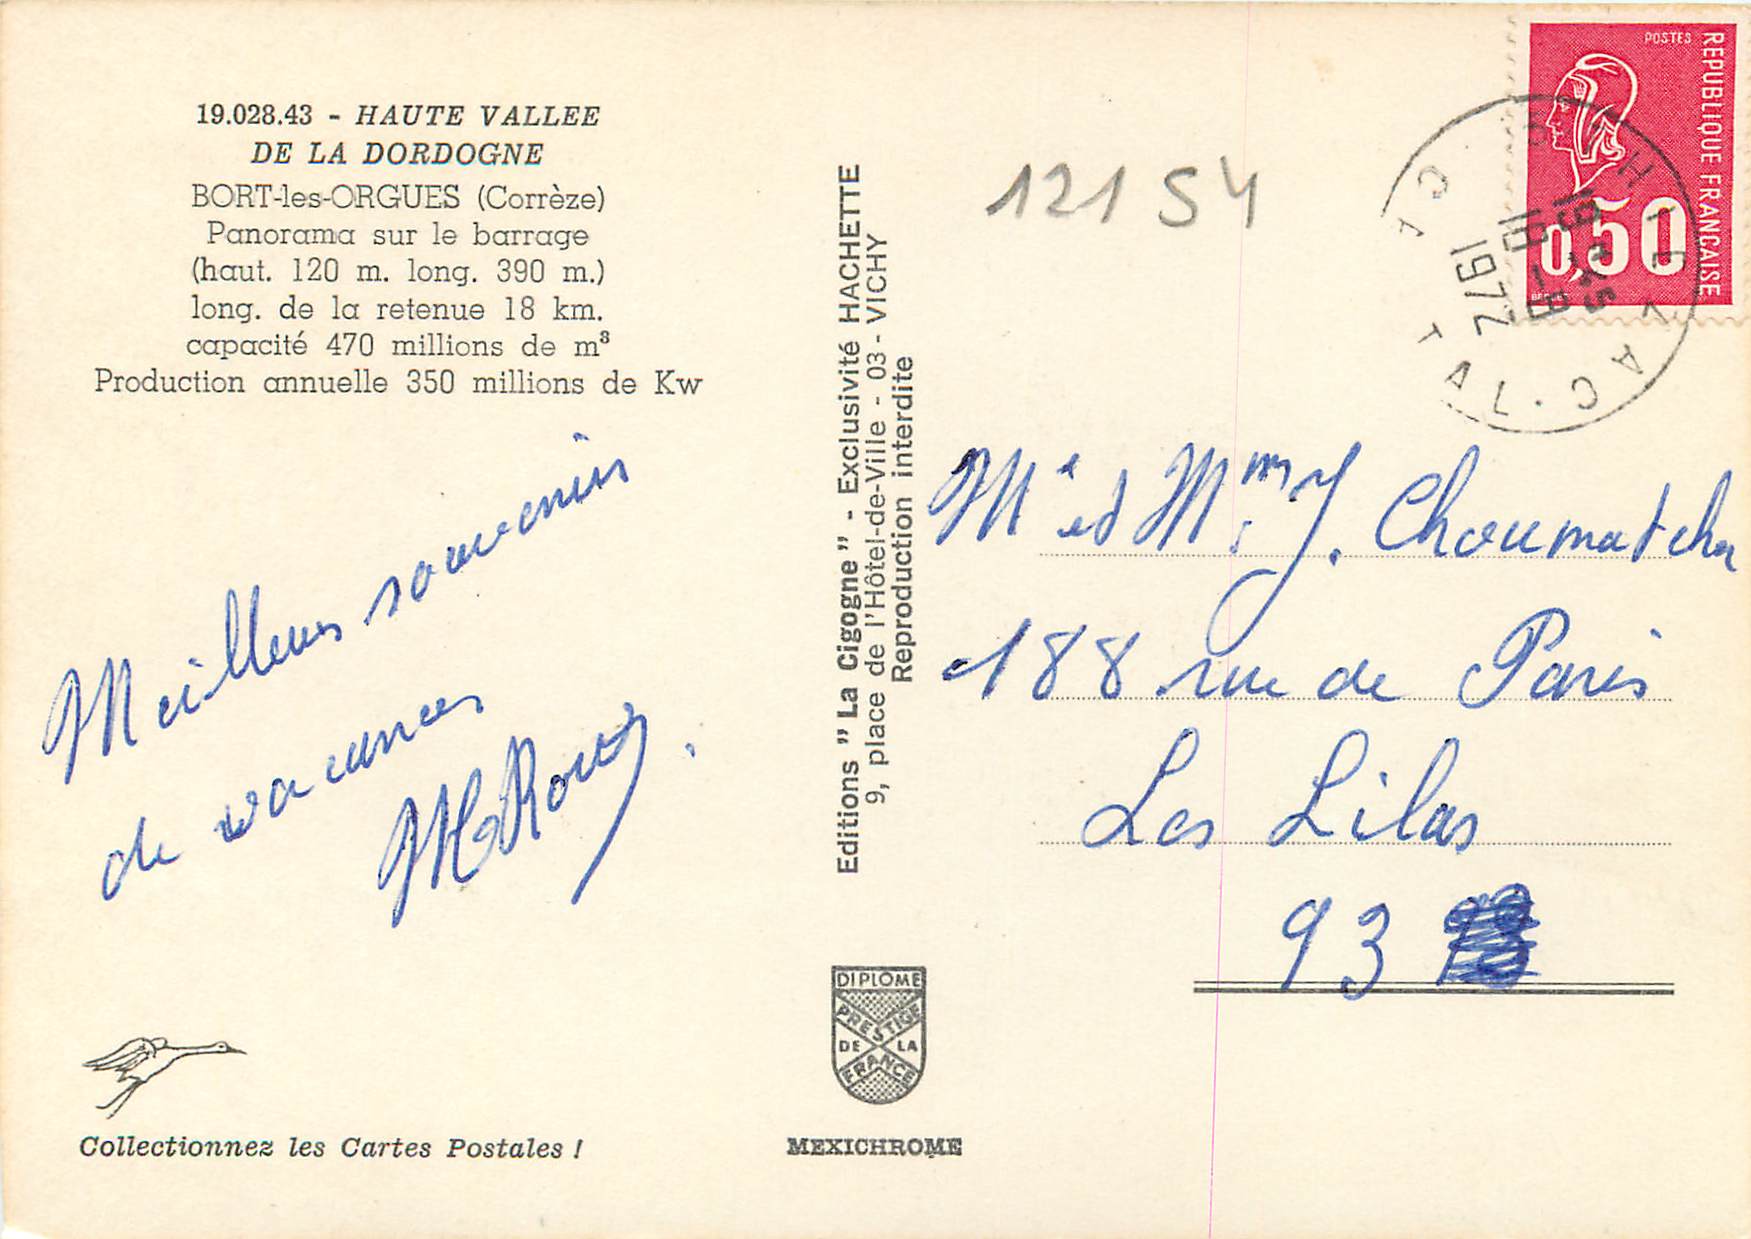 19.028.43 - HAUTE VALLEE
DE LA DORDOGNE
BORT-les-ORGUES (Corrèze)
Panorama sur le barrage
(haut. 120 m. long. 390 m.)
long. de la retenue 18 km.
capacité 470 millions de m³
Production annuelle 350 millions de Kw
Meilleurs souvenirs
de vacances
Collectionnez les Cartes Postales !
Editions "La Cigogne" - Exclusivité HACHETTE
9, place de l'Hôtel-de-Ville - 03 - VICHY
Reproduction interdite
DIPLOME
PRESTIGE
DE LA
FRANCE
MEXICHROME
121 S4
POSTES
REPUBLIQUE FRANCAISE
0,50
1971
CANTAL
Mr et Mme J. Choumatcher
188 rue de Paris
Les Lilas
93